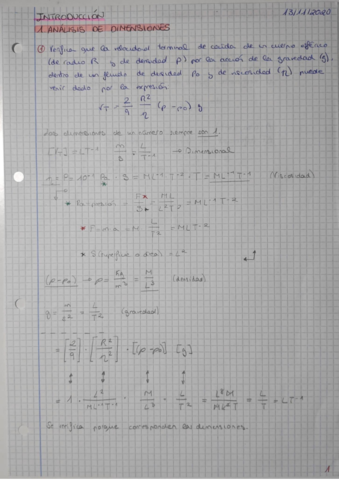 INTRODUCCIÓN 13/11/2020
1 ANALISIS DE DIMENSIONES
① Verifica que la velocidad terminal de caída de un cuerpo esférico
(de radio R y de densidad ρ) por la acción de la gravedad (g)
dentro de un fluido de densidad ρ₀ y de viscosidad (η) puede
venir dado por la expresión
v_T = 2/9 R²/η (ρ - ρ₀) g
Las dimensiones de un número siempre son 1.
[v_T] = LT⁻¹ m/s = L/T → Dimensional
ML⁻¹T⁻² · T = ML⁻¹T⁻¹ (Viscosidad)
* Pa = presión = F/S = ML/L²T² = ML⁻¹T⁻²
* F = m · a = M L/T² = MLT⁻²
* S (superficie o área) = L²
(ρ-ρ₀) → ρ = Kg/m³ = M/L³ (densidad)
g = m/s² = L/T² (gravedad)
= [2/9] · [R²/η] · [(ρ-ρ₀)] [g]
= 1 · L²/ML⁻¹T⁻¹ · M/L³ · L/T² = = L/T = LT⁻¹
Se verifica porque corresponden las dimensiones.
1